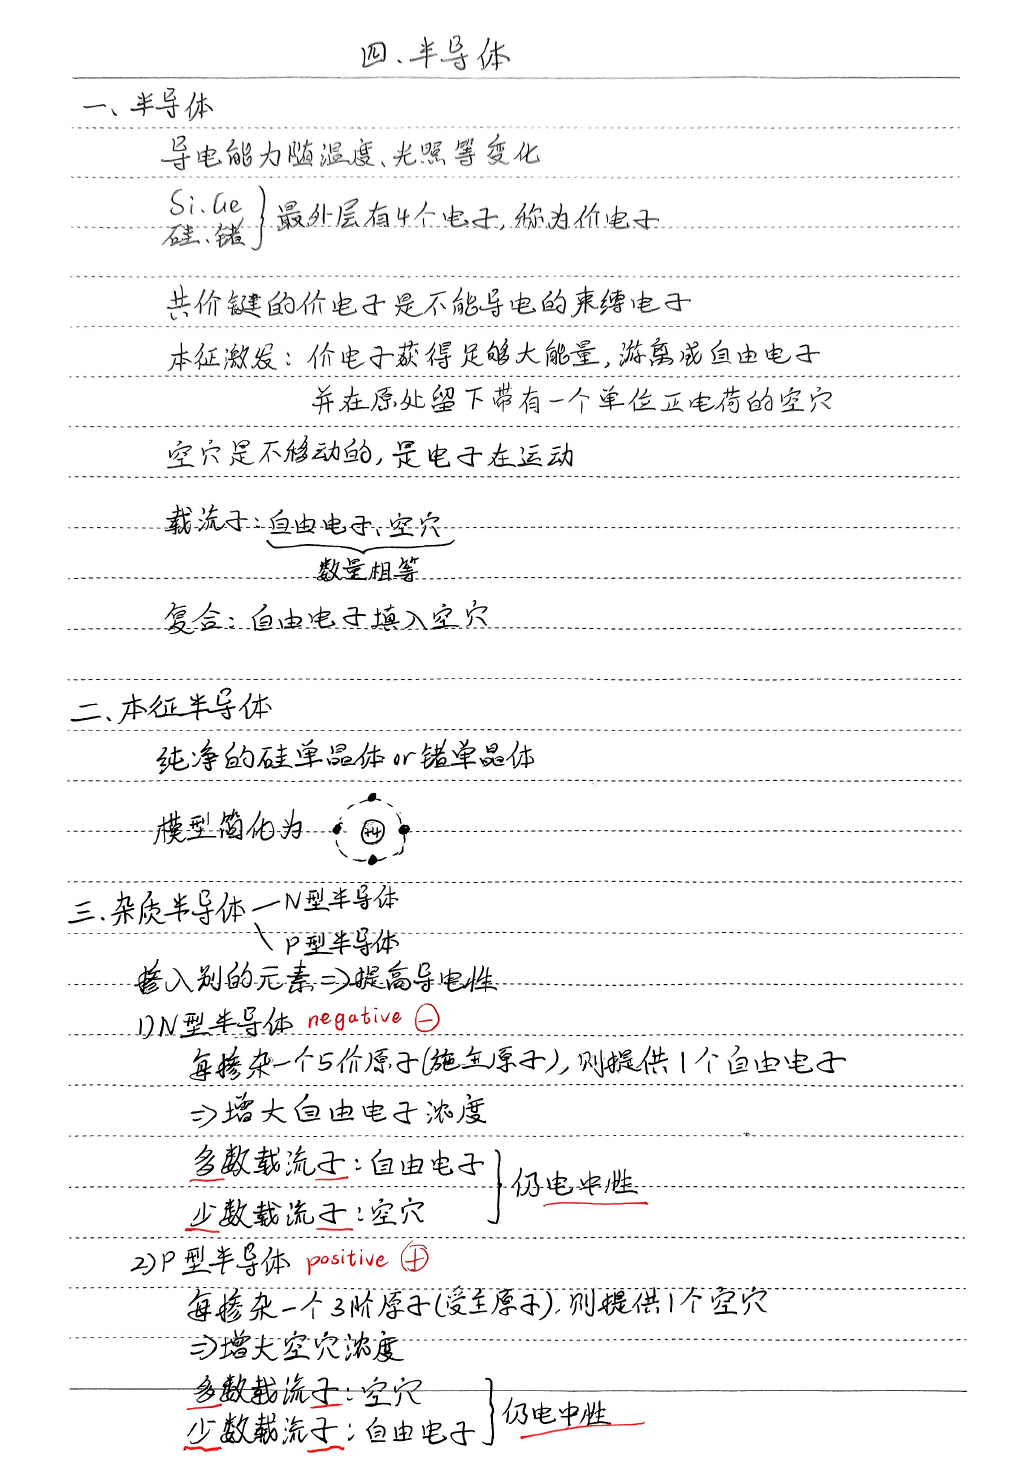 四、半导体
一、半导体
导电能力随温度、光照等变化
Si、Ge
硅、锗
最外层有4个电子,称为价电子
共价键的价电子是不能导电的束缚电子
本征激发：价电子获得足够大能量,游离成自由电子
并在原处留下带有一个单位正电荷的空穴
空穴是不移动的,是电子在运动
载流子：自由电子、空穴
数量相等
复合：自由电子填入空穴
二、本征半导体
纯净的硅单晶体or锗单晶体
模型简化为
+4
三、杂质半导体
N型半导体
P型半导体
掺入别的元素⇒提高导电性
1)N型半导体 negative ⊖
每掺杂一个5价原子(施主原子),则提供1个自由电子
⇒增大自由电子浓度
多数载流子：自由电子
少数载流子：空穴
仍电中性
2)P型半导体 positive ⊕
每掺杂一个3价原子(受主原子),则提供1个空穴
⇒增大空穴浓度
多数载流子：空穴
少数载流子：自由电子
仍电中性